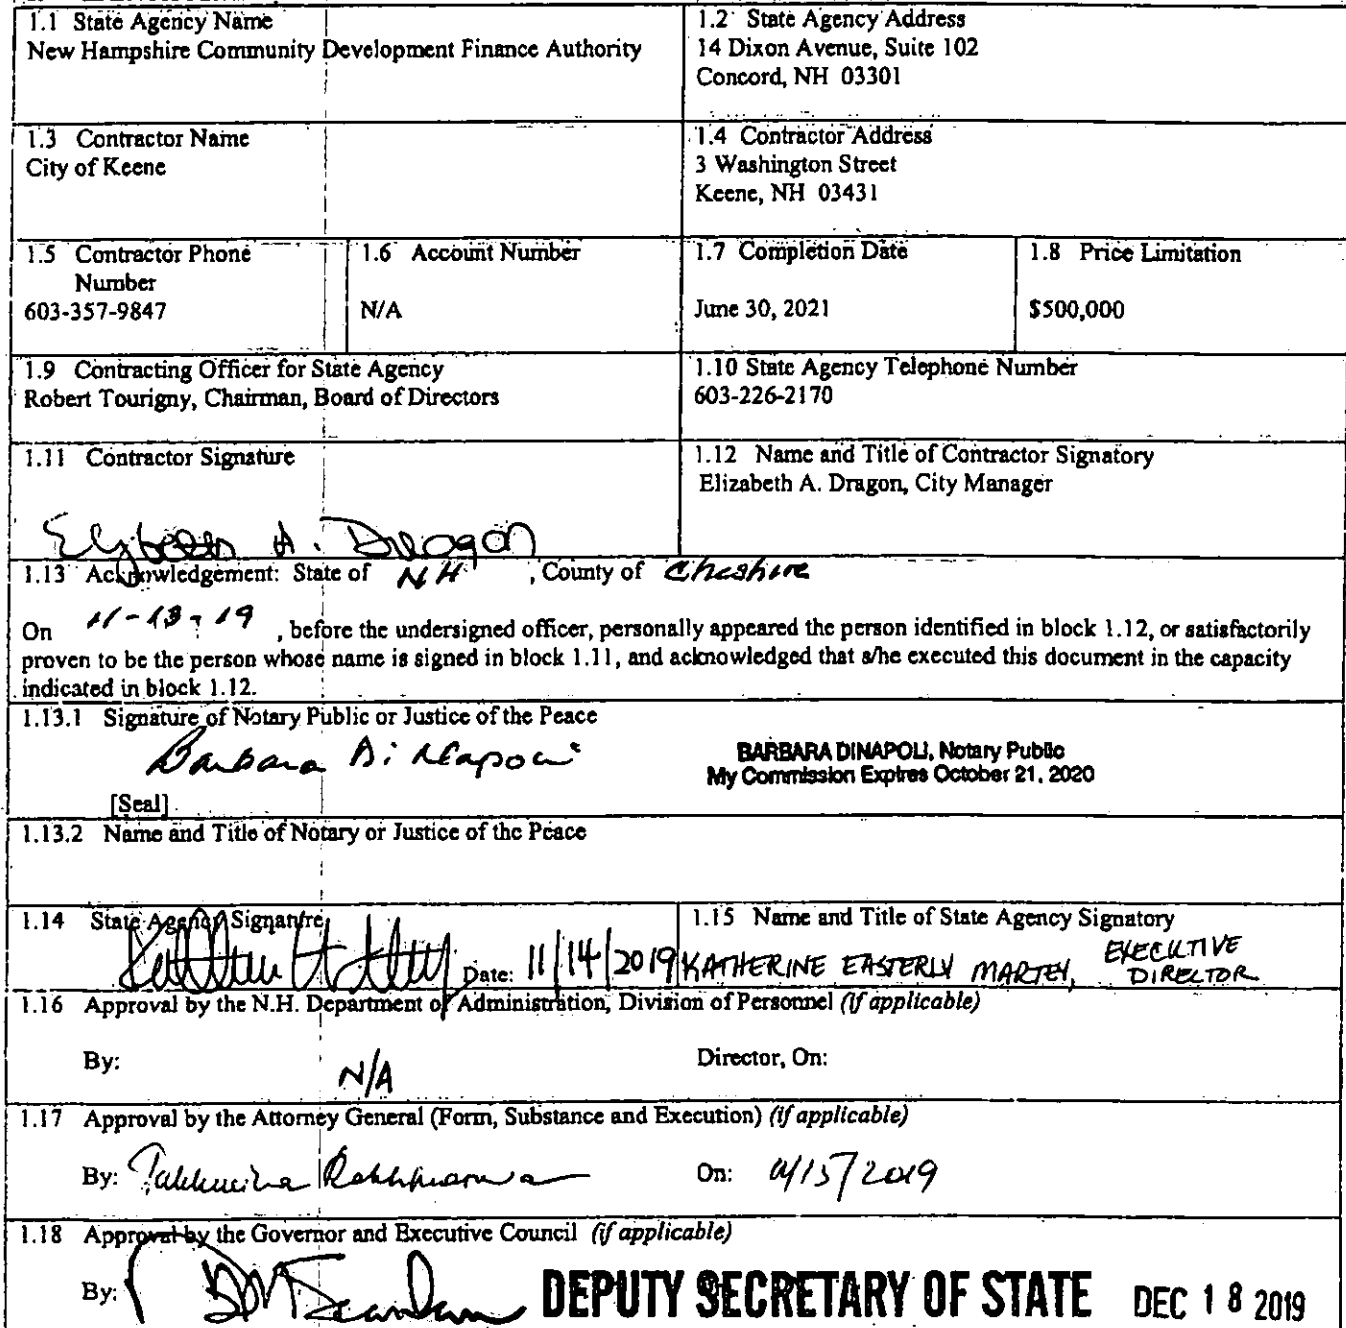 1.1 State Agency Name
New Hampshire Community Development Finance Authority
1.2 State Agency Address
14 Dixon Avenue, Suite 102
Concord, NH 03301
1.3 Contractor Name
City of Keene
1.4 Contractor Address
3 Washington Street
Keene, NH 03431
1.5 Contractor Phone
Number
603-357-9847
1.6 Account Number
N/A
1.7 Completion Date
June 30, 2021
1.8 Price Limitation
$500,000
1.9 Contracting Officer for State Agency
Robert Tourigny, Chairman, Board of Directors
1.10 State Agency Telephone Number
603-226-2170
1.11 Contractor Signature
1.12 Name and Title of Contractor Signatory
Elizabeth A. Dragon, City Manager
A. Dragon
1.13 Acknowledgement: State of NH , County of Cheshire
On 11-13-19 , before the undersigned officer, personally appeared the person identified in block 1.12, or satisfactorily
proven to be the person whose name is signed in block 1.11, and acknowledged that s/he executed this document in the capacity
indicated in block 1.12.
1.13.1 Signature of Notary Public or Justice of the Peace
Barbara DiNapoli
BARBARA DINAPOLI, Notary Public
My Commission Expires October 21, 2020
[Seal]
1.13.2 Name and Title of Notary or Justice of the Peace
1.14 State Agency Signature
Date: 11/14/2019
1.15 Name and Title of State Agency Signatory
KATHERINE EASTERLY MARTEY, EXECUTIVE
DIRECTOR
1.16 Approval by the N.H. Department of Administration, Division of Personnel (if applicable)
By: N/A Director, On:
1.17 Approval by the Attorney General (Form, Substance and Execution) (if applicable)
By: On: 11/15/2019
1.18 Approval by the Governor and Executive Council (if applicable)
By: DEPUTY SECRETARY OF STATE DEC 18 2019